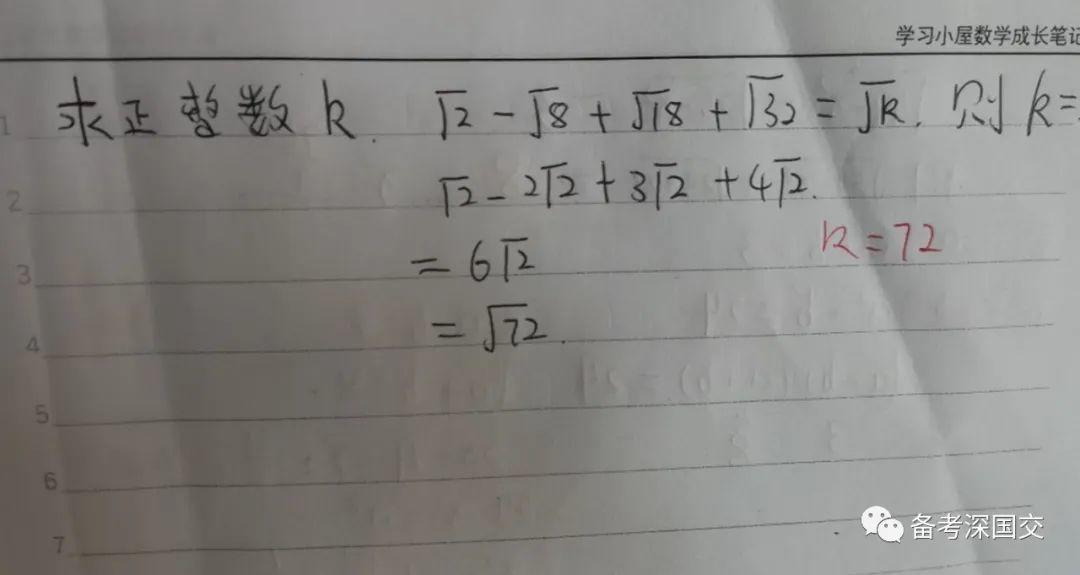 学习小屋数学成长笔记
1 求正整数k. √2 - √8 + √18 + √32 = √k. 则k=
2 √2 - 2√2 + 3√2 + 4√2.
k=72
3 = 6√2
4 = √72.
5
6
7
备考深国交